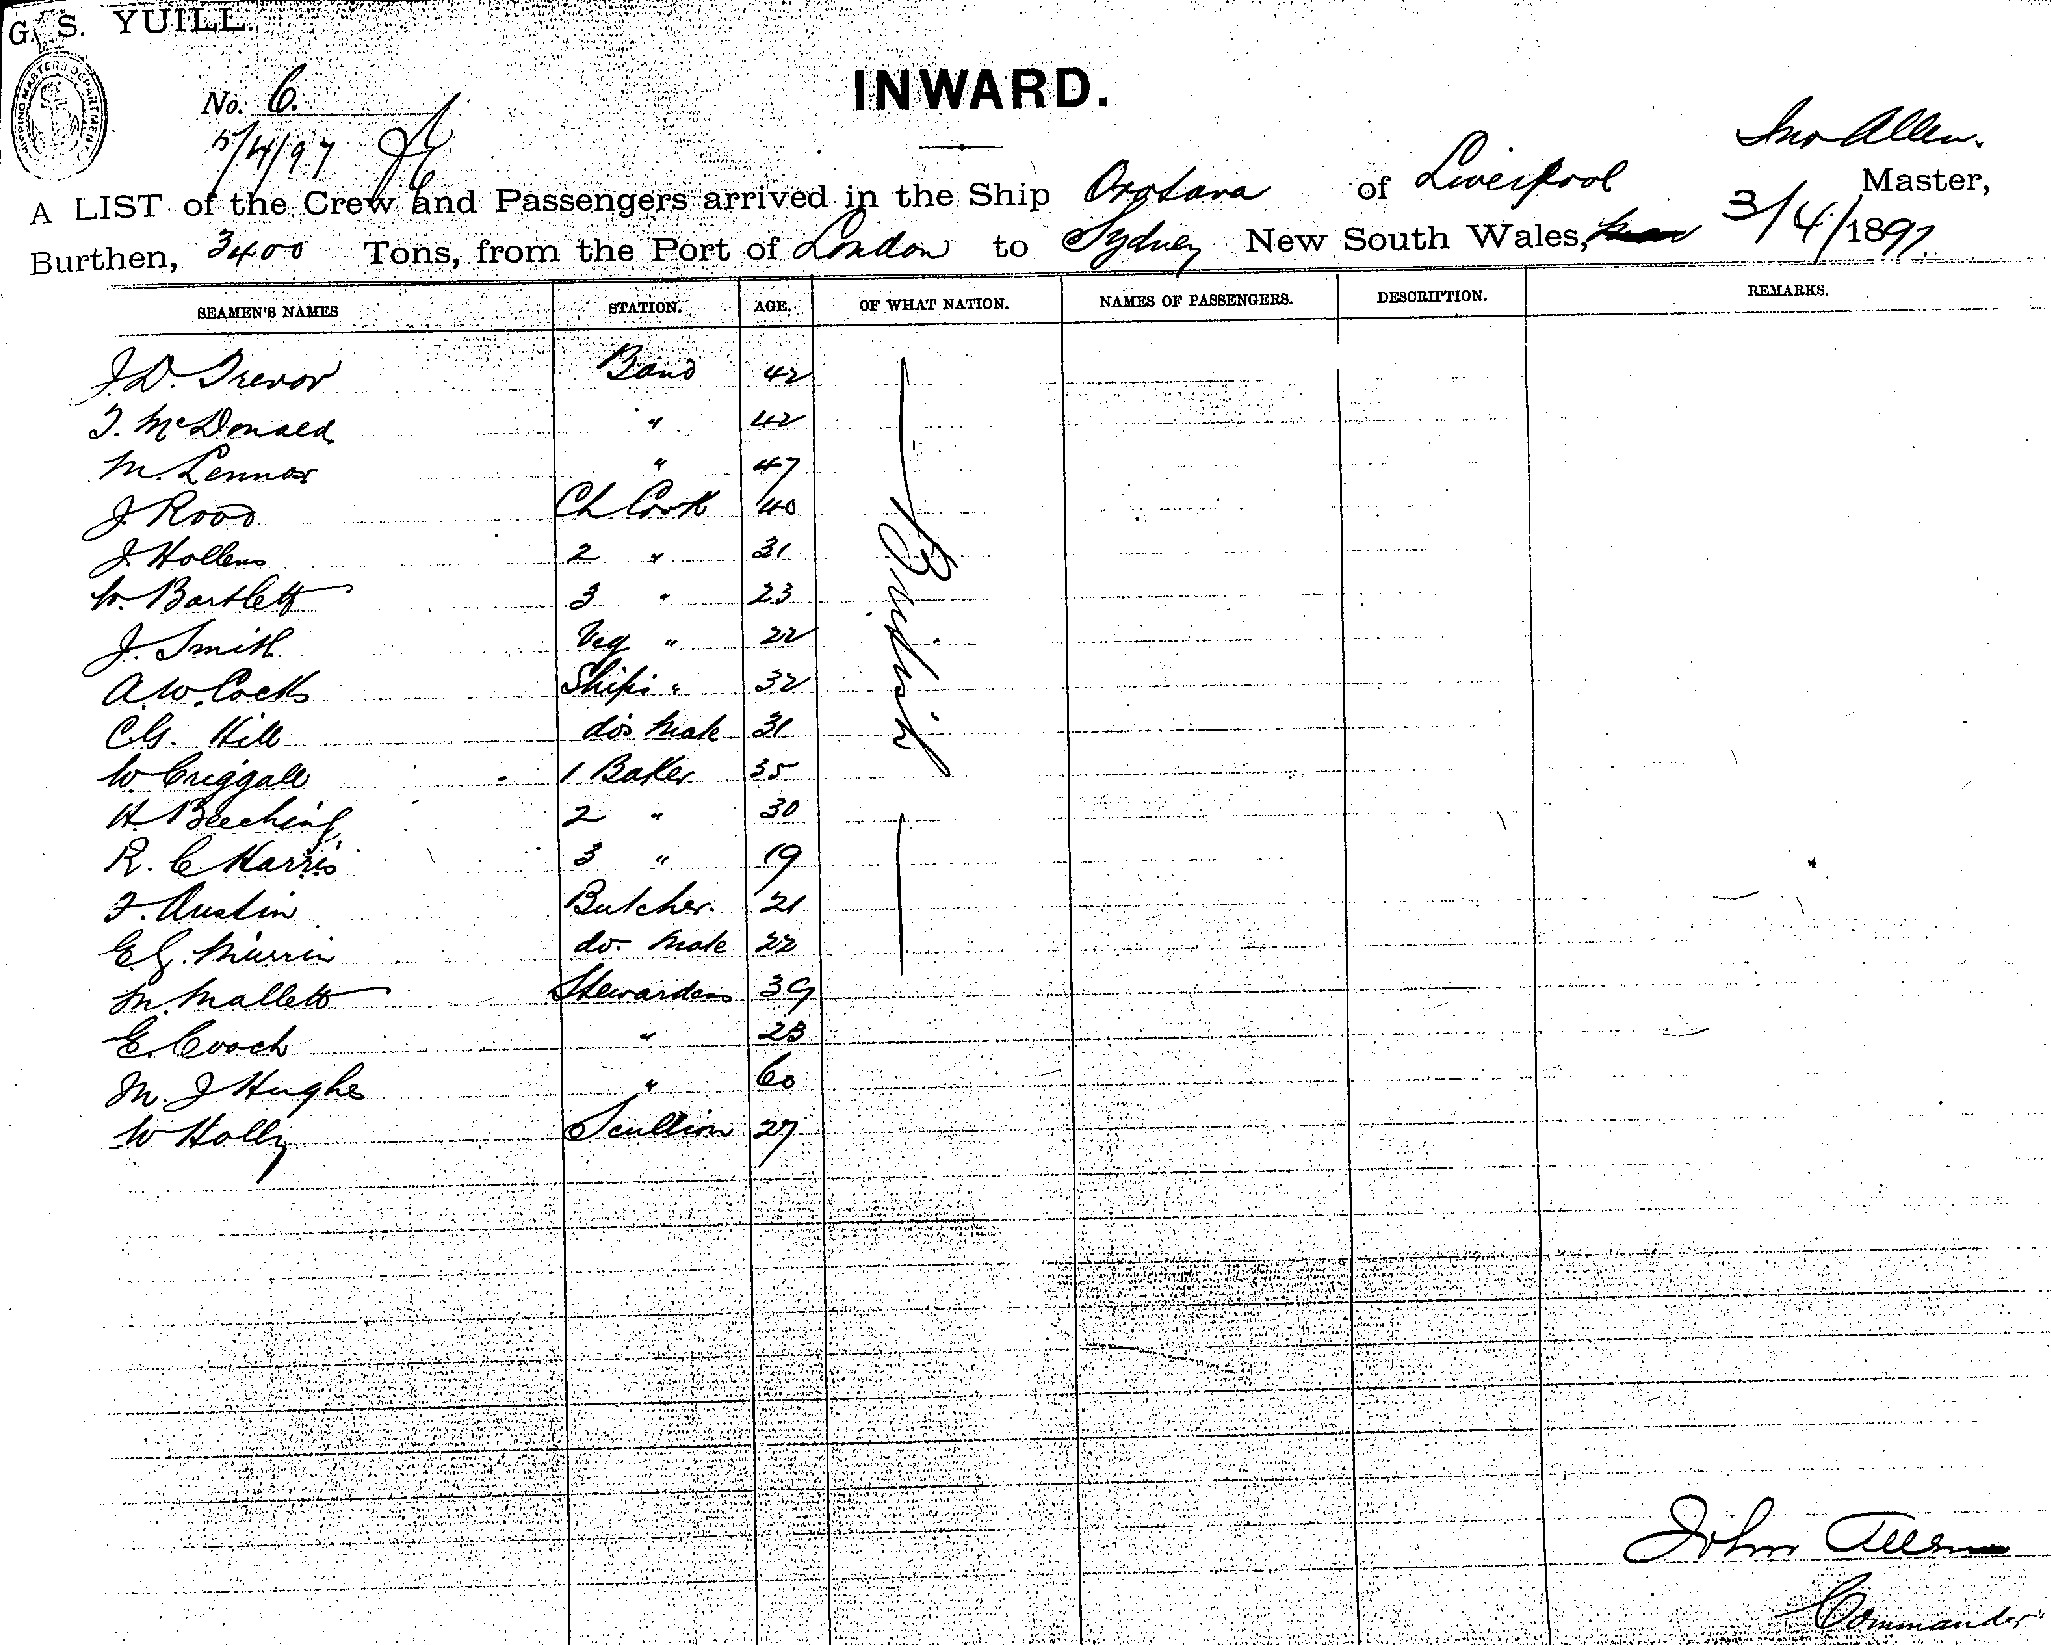 G. S. YUILL.
No. 6.
INWARD.
5/4/97
Jno Allen.
A LIST of the Crew and Passengers arrived in the Ship Orotava of Liverpool Master,
Burthen, 3400 Tons, from the Port of London to Sydney New South Wales, 3/4/1897.
SEAMEN'S NAMES STATION. AGE. OF WHAT NATION. NAMES OF PASSENGERS. DESCRIPTION. REMARKS.
J.D. Trevor Band 42
T. McDonald " 42
M. Lennox " 47
J. Rood Ch Cook 40
J. Hollens 2 " 31
W. Bartlett 3 " 23
J. Smith Veg " 22
A.W. Cocks Ships " 32
British
C.G. Hill do's Mate 31
W. Criggall 1 Baker 35
H. Beeching 2 " 30
R. C Harris 3 " 19
F. Austin Butcher. 21
E.J. Murrin do. Mate 22
M. Mallett Stewardess 39
E. Cooch " 23
M. J Hughes " 60
W Holly Scullion 27
John Allen
Commander